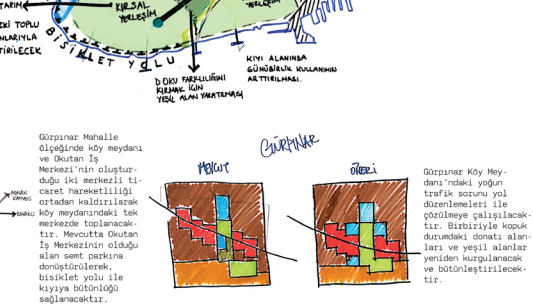 TARIM
KIRSAL
YERLEŞİM
YERLEŞİM
EKİ TOPLU
NLARIYLA
TİRİLECEK
BİSİKLET YOLU
DOKU FARKLILIĞINI
KIRMAK İÇİN
YEŞİL ALAN YARATMASI
KIYI ALANINDA
GÜNÜBİRLİK KULLANIMIN
ARTTIRILMASI.
GÜRPINAR
MEVCUT
ÖNERİ
Gürpınar Mahalle
ölçeğinde köy meydanı
ve Okutan İş
Merkezi'nin oluştur-
duğu iki merkezli ti-
caret hareketliliği
ortadan kaldırılarak
köy meydanındaki tek
merkezde toplanacak-
tır. Mevcutta Okutan
İş Merkezinin olduğu
alan semt parkına
dönüştürülerek,
bisiklet yolu ile
kıyıya bütünlüğü
sağlanacaktır.
Gürpınar Köy Mey-
danı'ndaki yoğun
trafik sorunu yol
düzenlemeleri ile
çözülmeye çalışılacak-
tır. Birbiriyle kopuk
durumdaki donatı alan-
ları ve yeşil alanlar
yeniden kurgulanacak
ve bütünleştirilecek-
tir.